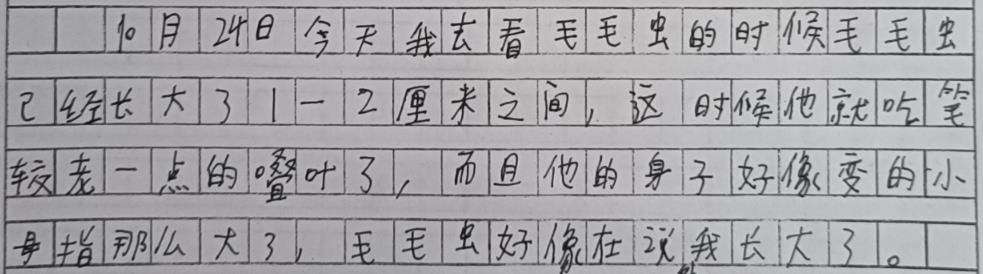 10月24日今天我去看毛毛虫的时候毛毛虫
已经长大了1一2厘米之间，这时候他就吃笔
较老一点的噾叶了，而且他的身子好像变的小
手指那么大了，毛毛虫好像在说我长大了。